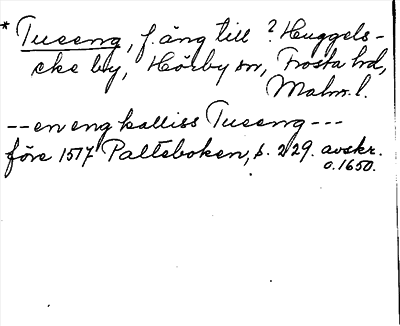 * Tuseng, f. äng till ? Huggels-
eke by, Hörby sn, Frosta hd,
Malm. l.
-- en eng kalliss Tuseng ---
före 1517 Palteboken, s. 229. avskr.
o. 1650.